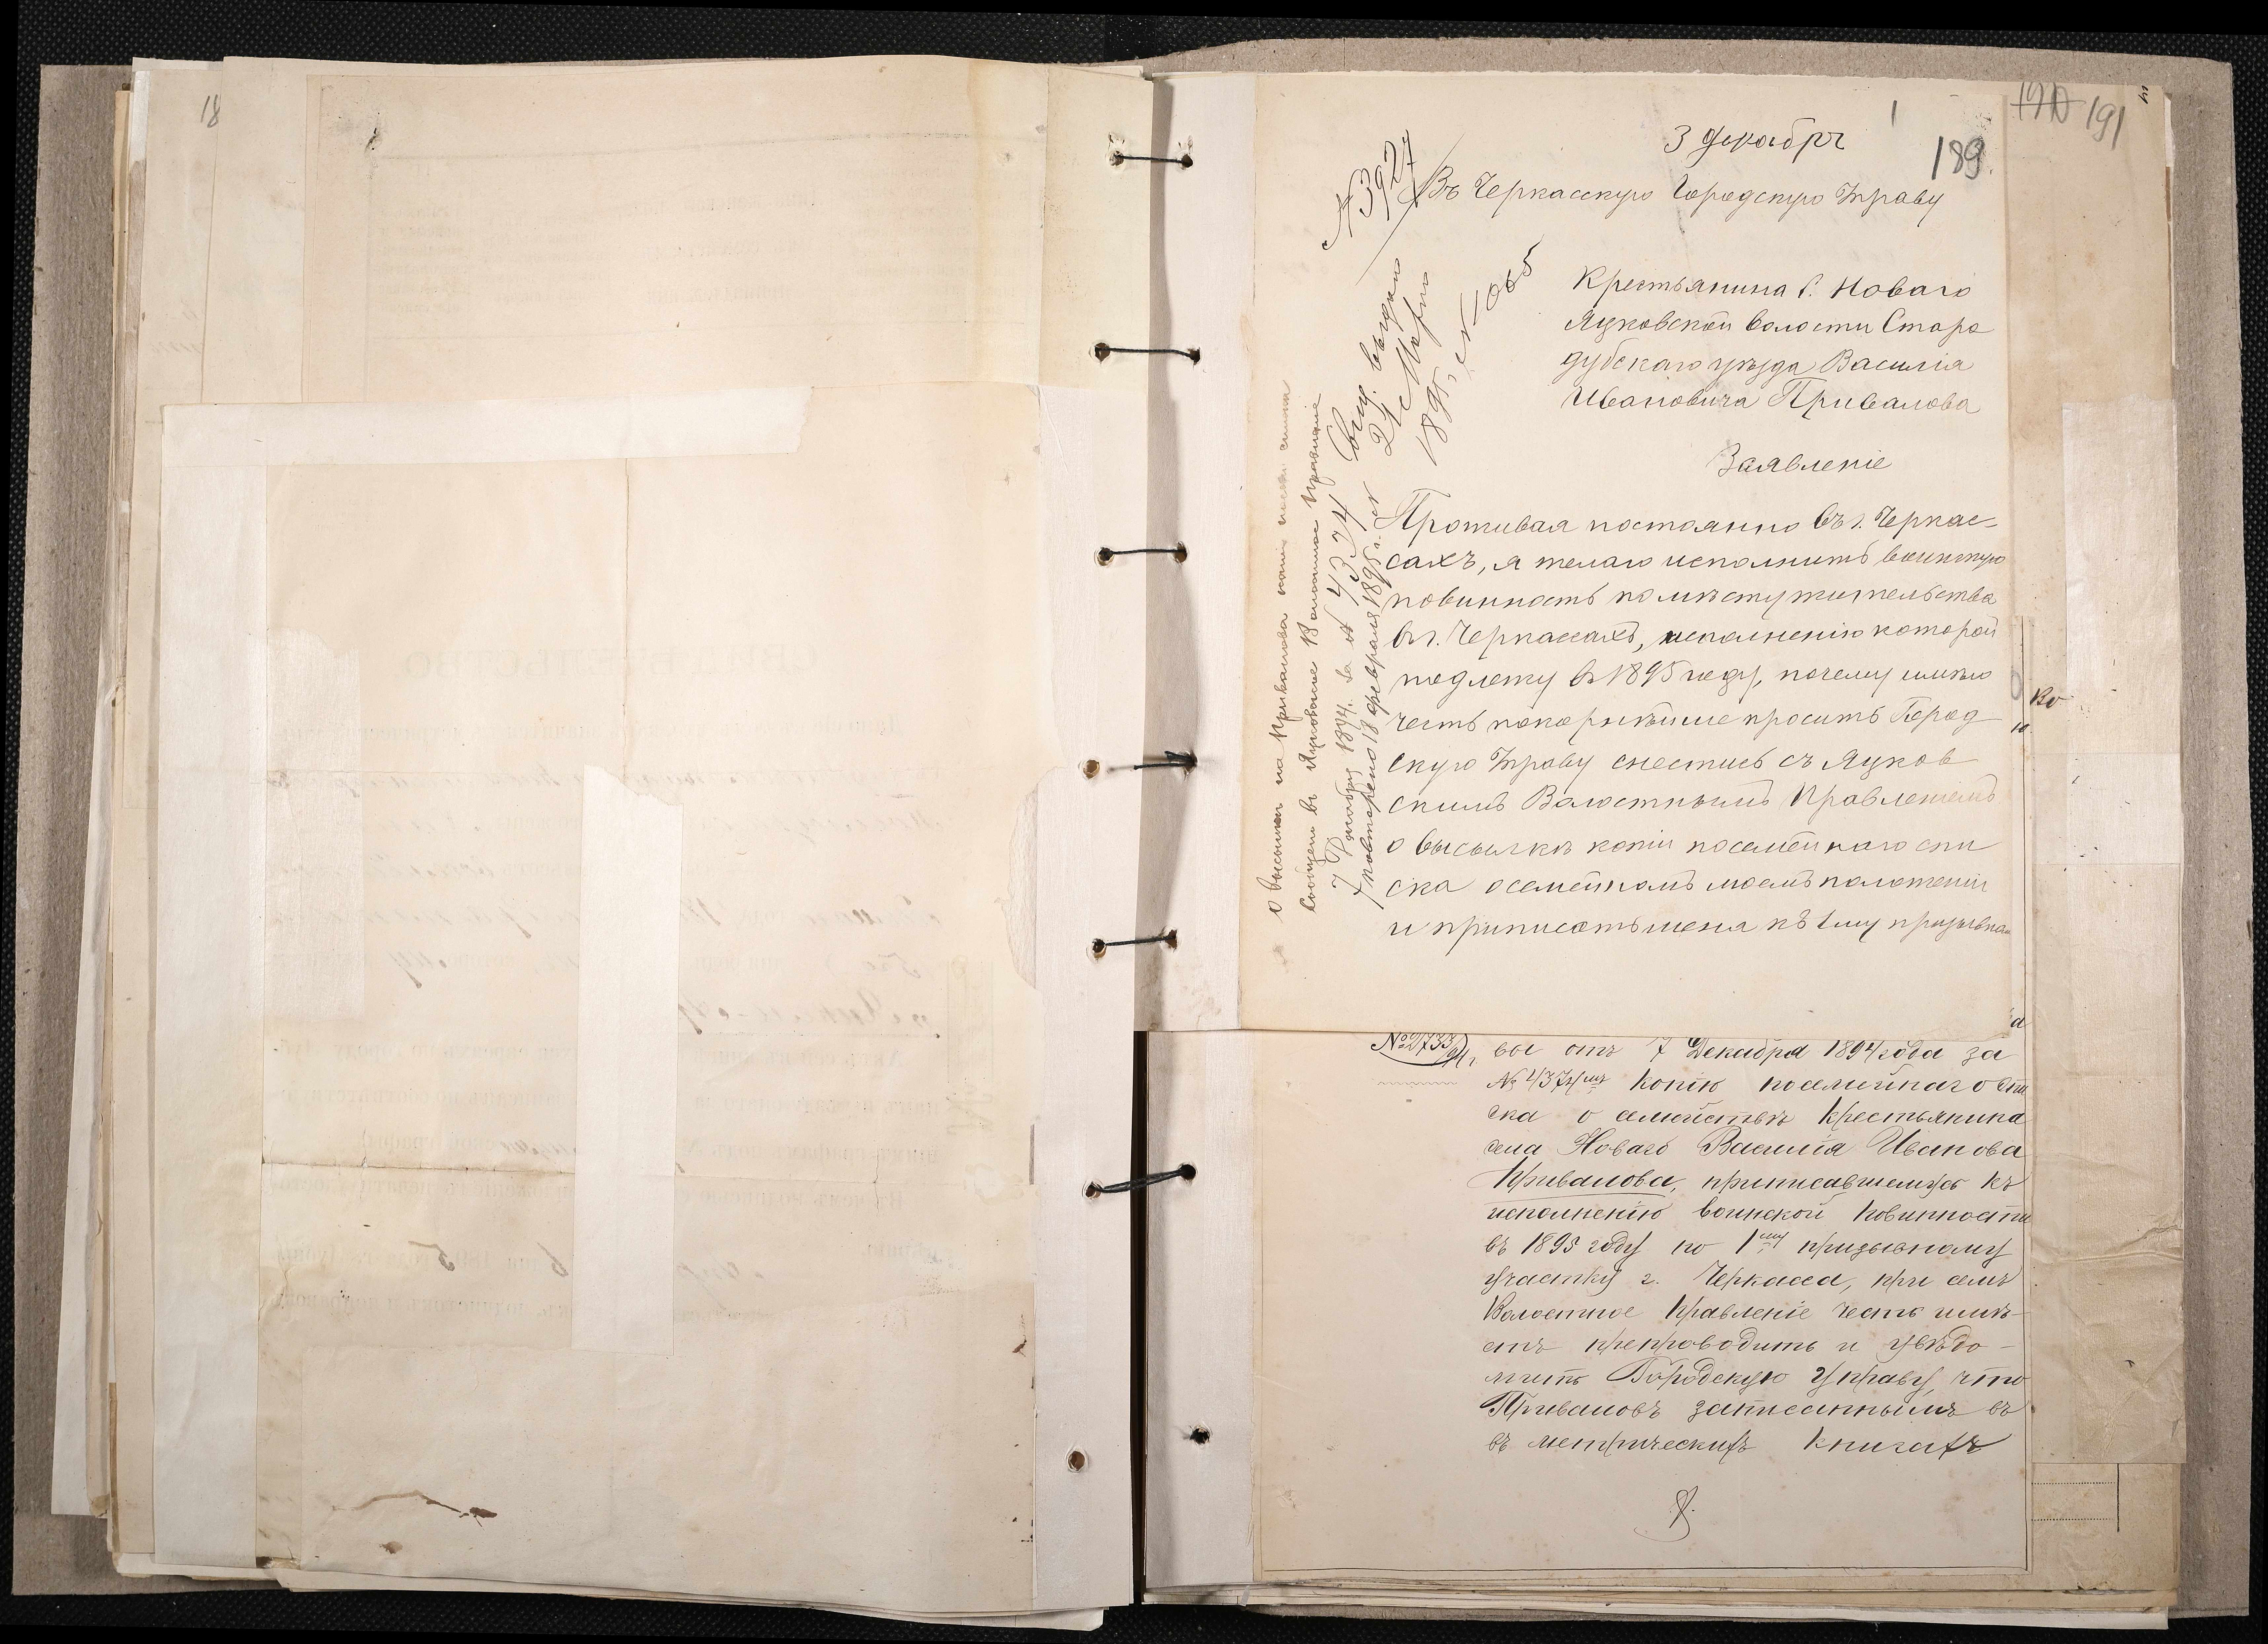 18
190 191
1
189
3 Декабрг
№ 3927
Въ Черкасскую Городскую Управу
Крестьянина с. Новаго
Яцковской волости Старо
дубскаго уѣзда Василія
Ивановича Привалова
Заявленіе
Проживая постоянно въ г. Черкас-
сахъ, я желаю исполнить воинскую
повинность по мѣсту жительства
въ г. Черкассахъ, исполненію которой
подлежу въ 1895 году, почему имѣю
честь покорнѣйше просить Город
скую Управу снестись съ Яцков
скимъ Волостнымъ Правленіемъ
о высылкѣ копіи посемейнаго спи
ска о семейномъ моемъ положеніи
и приписать меня къ 1му призывном
Свид. выдано
21 Марта
1895 г. № 1065
О высылкѣ на Привалова копіи посем. списка
сообщен въ Яцковское Волостное Правленіе
7 Декабря 1894 г. за № 4374
повторено 18 февраля 1895 г. №
№ 2733/94 г.
вы отъ 7 Декабря 1894 года за
№ 4374мъ копію посемейнаго спи
ска о семействѣ крестьянина
села Новаго Василія Иванова
Привалова, приписавшемуся къ
исполненію воинской повинности
въ 1895 году по 1му призывному
участку г. Черкасса, при семъ
Волостное Правленіе честь имѣ-
етъ препроводить и увѣдо-
мить Городскую Управу, что
Приваловъ записаннымъ въ
въ метрическихъ книгахъ